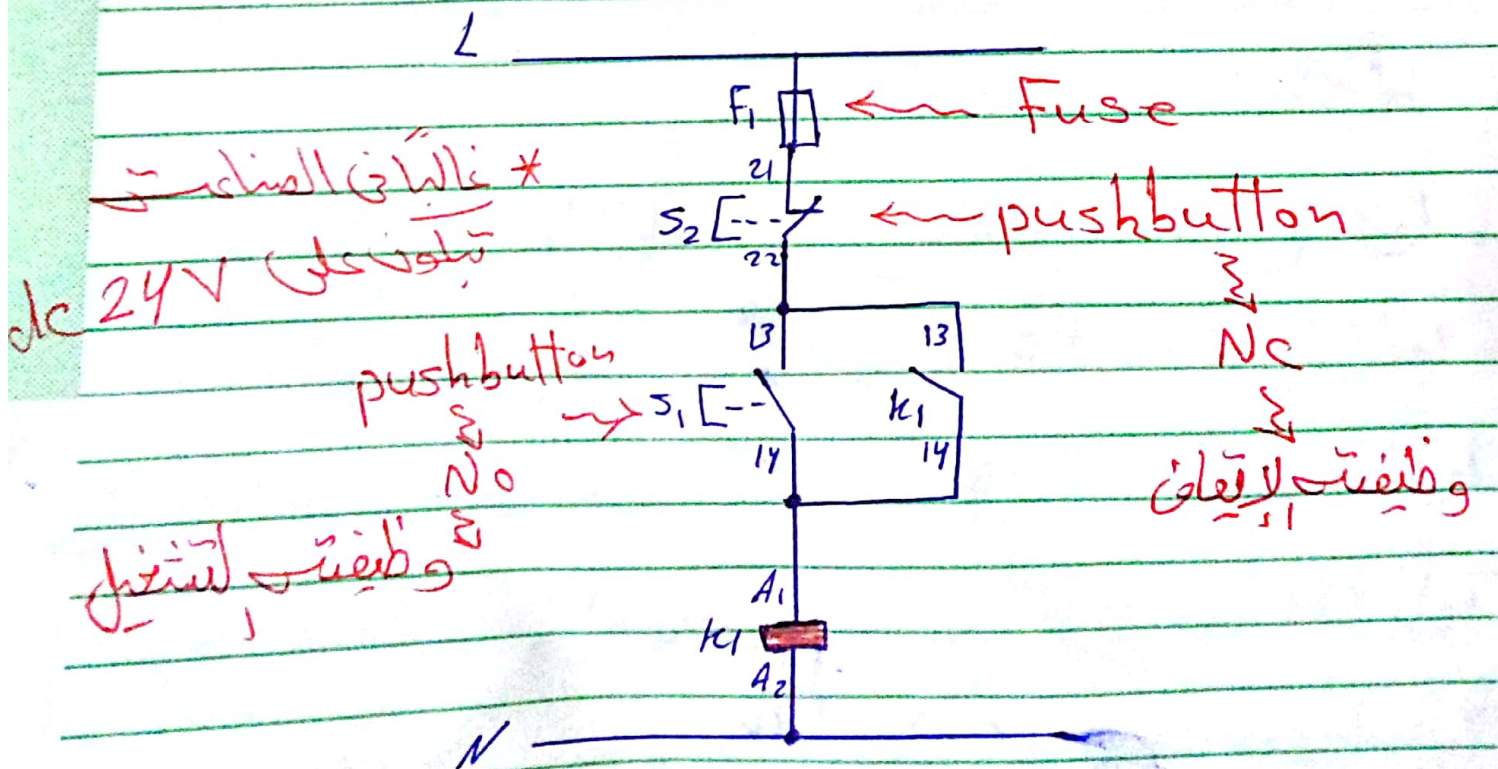 L
F1
Fuse
21
* غالبًا في الصناعة
تكون على 24V dc
S2
pushbutton
22
NC
وظيفته لإيقاف
13
13
pushbutton
S1
K1
NO
14
14
وظيفته لتشغيل
A1
K1
A2
N